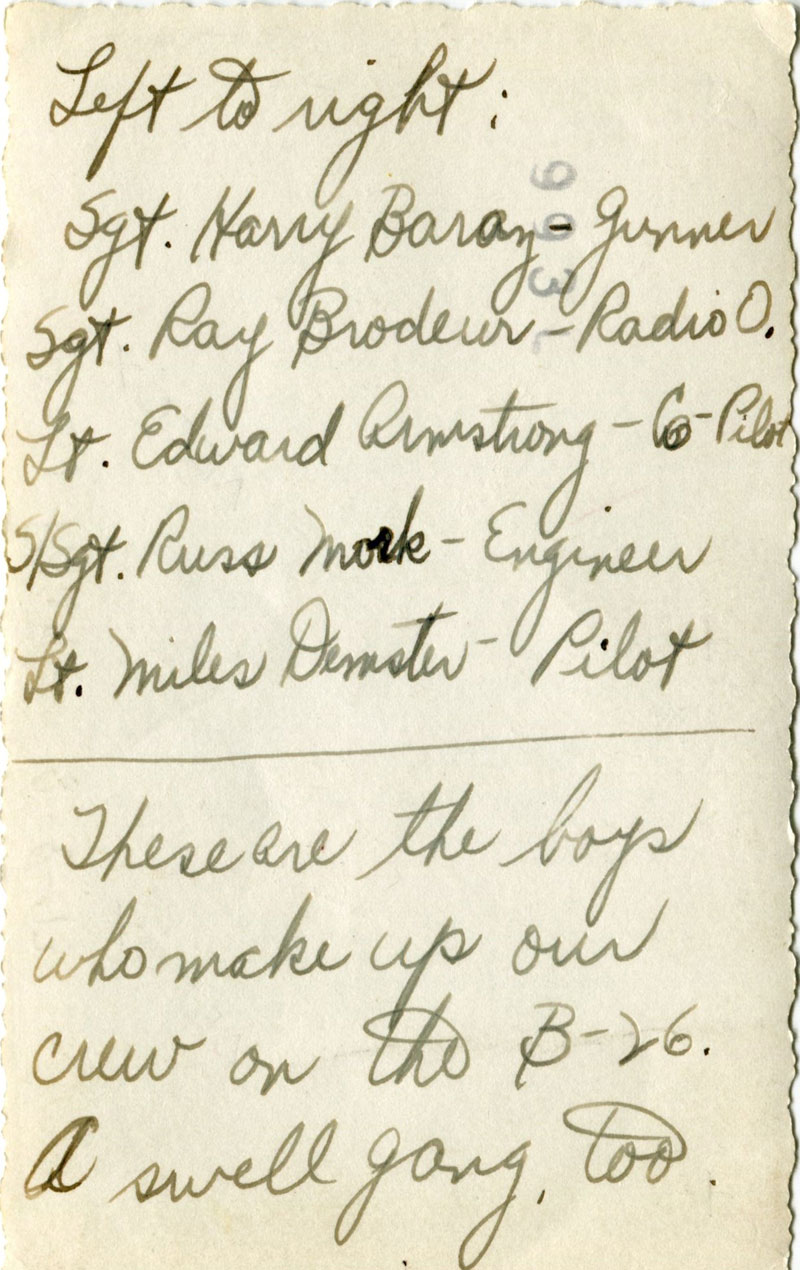 Left to right:
Sgt. Harry Baray - Gunner
Sgt. Ray Brodeur - Radio O.
Lt. Edward Armstrong - Co-Pilot
S/Sgt. Russ Mork - Engineer
Lt. Miles Demster - Pilot
These are the boys
who make up our
crew on the B-26.
A swell gang, too.